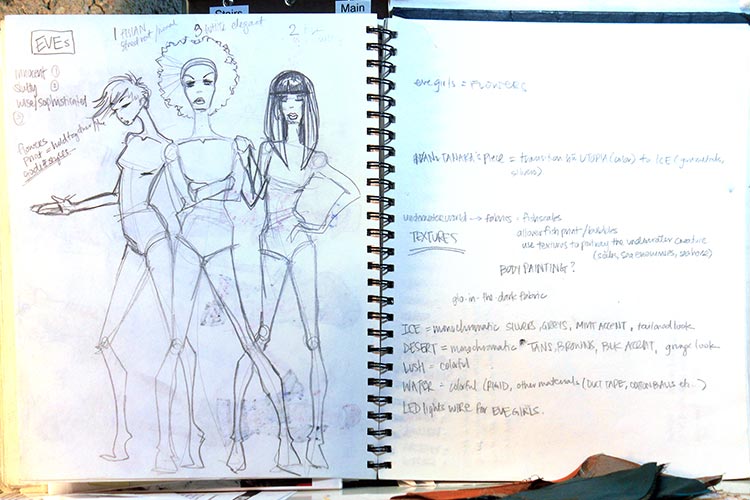 Stairs
Main
EVEs
1 ASIAN
3 elegant
2
innocent ①
slutty ③
wise/sophisticated
②
flowers
print = hold together
eve girls = FLOWERS
TANAKA'S piece = transition b/w UTOPIA (color) to ICE (
silvers)
underwater world → fabrics = fishscales
allover fish print / bubbles
TEXTURES
use textures to portray the underwater creature
(scales, sea enemomies, seahorse)
BODYPAINTING?
glo-in-the-dark fabric
ICE = monochromatic SILVERS, GREYS, MINT ACCENT, tailored look
DESERT = monochromatic TANS, BROWNS, BLK ACCENT, grunge look
LUSH = colorful
WATER = colorful (RIGID, other materials (DUCT TAPE, COTTON BALLS etc...)
LED lights WIRE for EVE GIRLS.